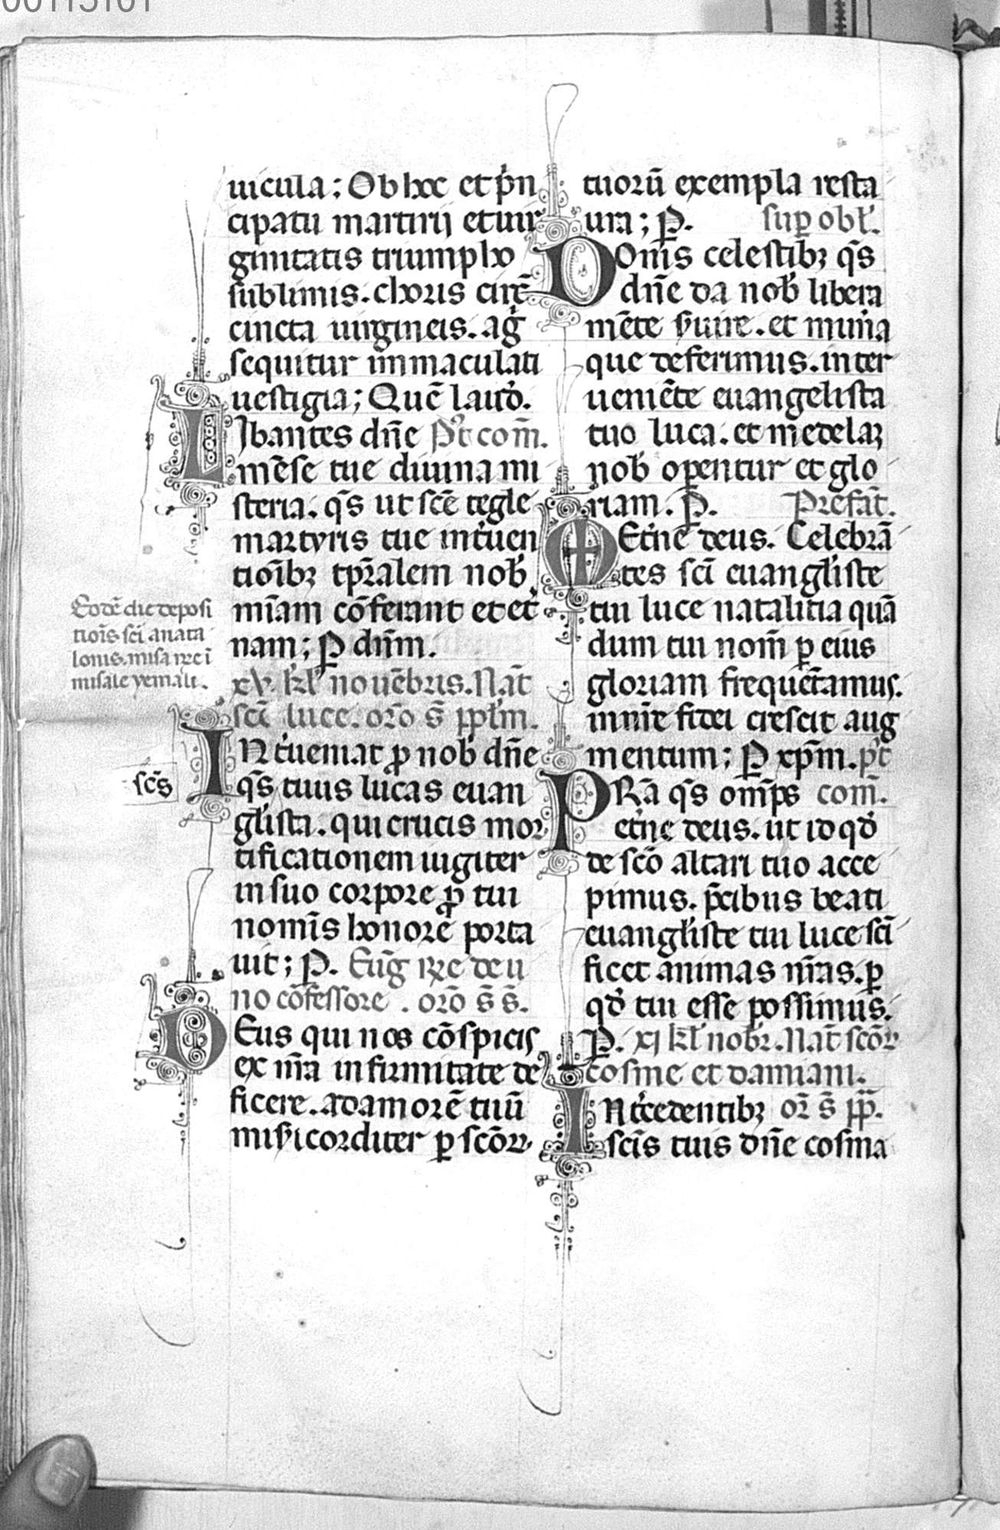 00113101
uicula; Ob hoc et p̃n
cipatu martirij et uir
ginitatis triumpho
sublimis. choris circ̃
cincta uirgineis. ag̃
sequitur immaculati
uestigia; Quẽ laud̃o.
LIbantes dñe P̃t com̃.
mẽse tue diuina mi
steria. q̃s ut sc̃e tegle
martyris tue int̃uen
tioĩbꝫ tp̃ralem nob̃
miãm cõferant et et̃
nam; P̲ dñm.
xv. kl̃ nouẽbris. Nat̃
sc̃i luce. or̃o s̃ pp̃lm.
INt̃ueniat ꝓ nob̃ dñe
q̃s tuus lucas euan
gl̃ista. qui crucis mor
tificationem iugiter
in suo corpore ꝓ tui
nomĩs honore porta
uit; P̲. Eug̃ r̃re de u
no cõfessore. or̃o s̃ s̃.
DEus qui nos cõspicis
ex nr̃a infirmitate de
ficere. ad amorẽ tuũ
mis̃icorditer ꝑ scõꝝ
Eodẽ die deposi
tiõis sc̃i anata
lonis. misa r̃re ĩ
misale yemali.
sc̃s
tuorũ exempla resta
ura; P̲. sup̱ obl̃.
DOnis celestibꝫ q̃s
dñe da nob̃ libera
mẽte s̃uire. et mun̄a
que deferimus. inter
ueniẽte euangelista
tuo luca. et medelaꝫ
nob̃ operentur et glo
riam. P̲. Prefat̃.
Et̃ne deus. Celebrã
tes sc̃i euangl̃iste
tui luce natalitia quã
dum tui nom̃ ꝑ eius
gloriam frequẽtamus.
mun̄e fidei crescit aug
mentum; P̲ xp̃m. p̃t
PRã q̃s om̃ps com̃.
et̃ne deus. ut id qd̃
de scõ altari tuo acce
pimus. p̃cibus beati
euangl̃iste tui luce sc̃i
ficet animas nr̃as. ꝑ
qd̃ tui esse possimus.
P̲. xj kl̃ nobr̃. Nat̃ scõꝝ
cosme et damiani.
INt̃cedentibꝫ or̃ s̃ pp̃.
sc̃is tuis dñe cosma